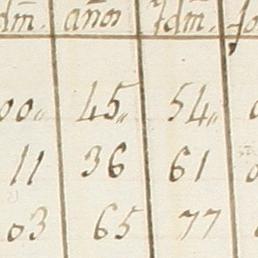 dm. años Idm. fo
00„ 45„ 54„
11 36 61
03 65 77